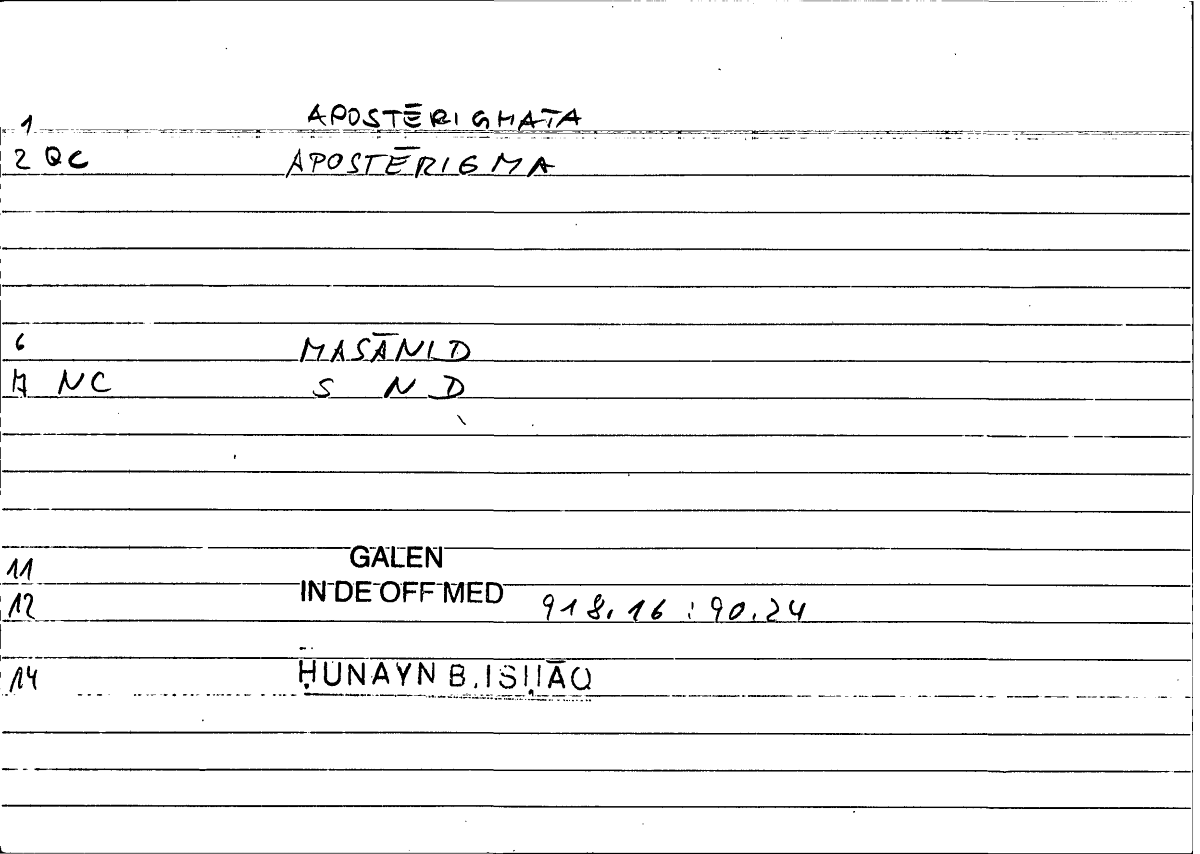 1 APOSTĒRIGMATA
2 QC APOSTĒRIGMA
6 MASĀNID
7 NC S N D
11 GALEN
12 IN DE OFF MED 918.16 : 90.24
14 ḤUNAYN B. ISḤĀQ